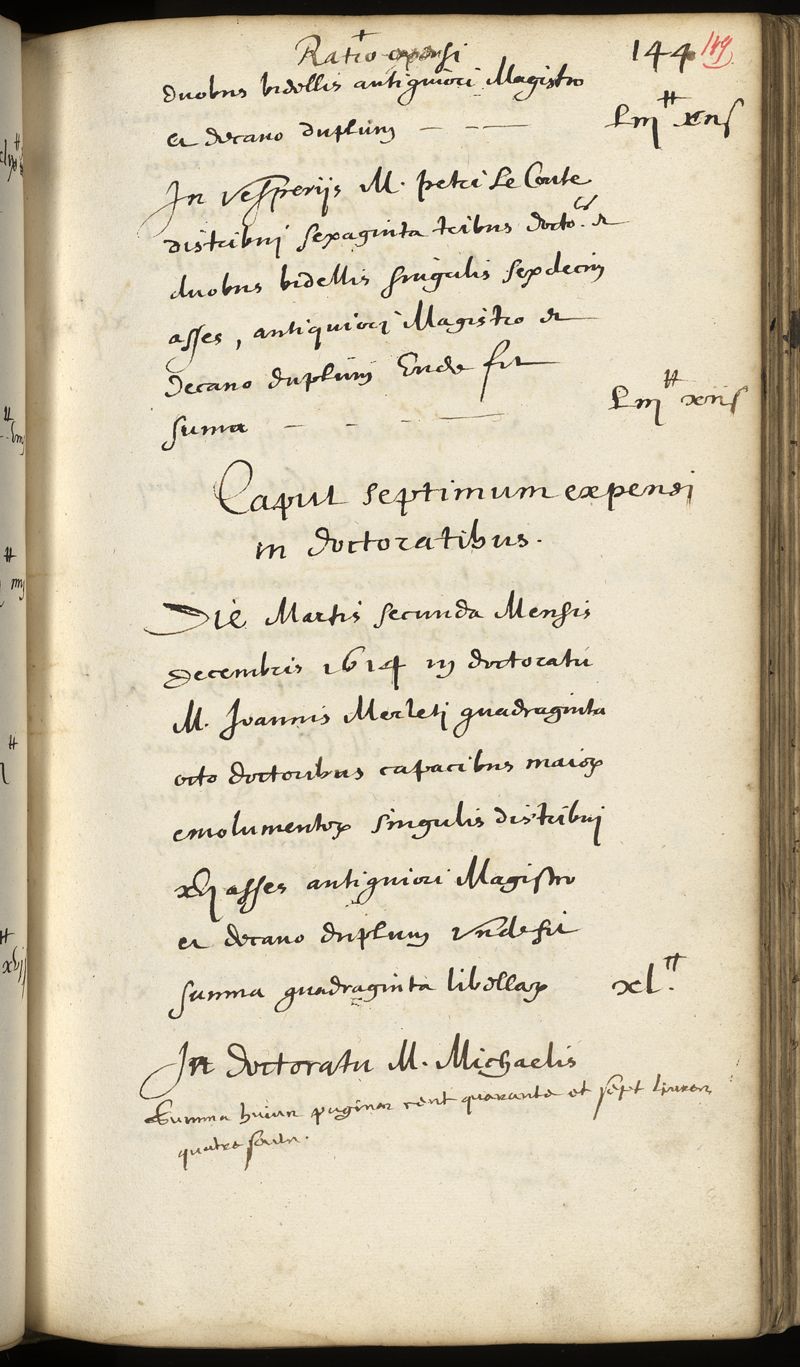 Ratio expensi 144 149
duobus bidellis antiquiori Magistro
et decano duplum — — — Liij tt xij s
In vesperijs M. petri Le Conte
distribuj sexaginta tribus docto. et
duobus bidellis singulis sexdecim
asses, antiquiorj Magistro et
Decano duplum Unde fit
suma — — — — Liij tt xij s
Caput septimum expensi
in doctoratibus.
Die Martis secunda Mensis
decembris 1614 in doctoratu
M. Joannis Merletj quadraginta
octo doctoribus capacibus maioꝝ
emolumentoꝝ singulis distribuj
xvj asses antiquiori Magistro
et decano duplum Unde fit
summa quadraginta libellaꝝ xl tt.
In doctoratu M. Michaelis
Summa huius paginae cent quarante et sept livres
quatre soulz.